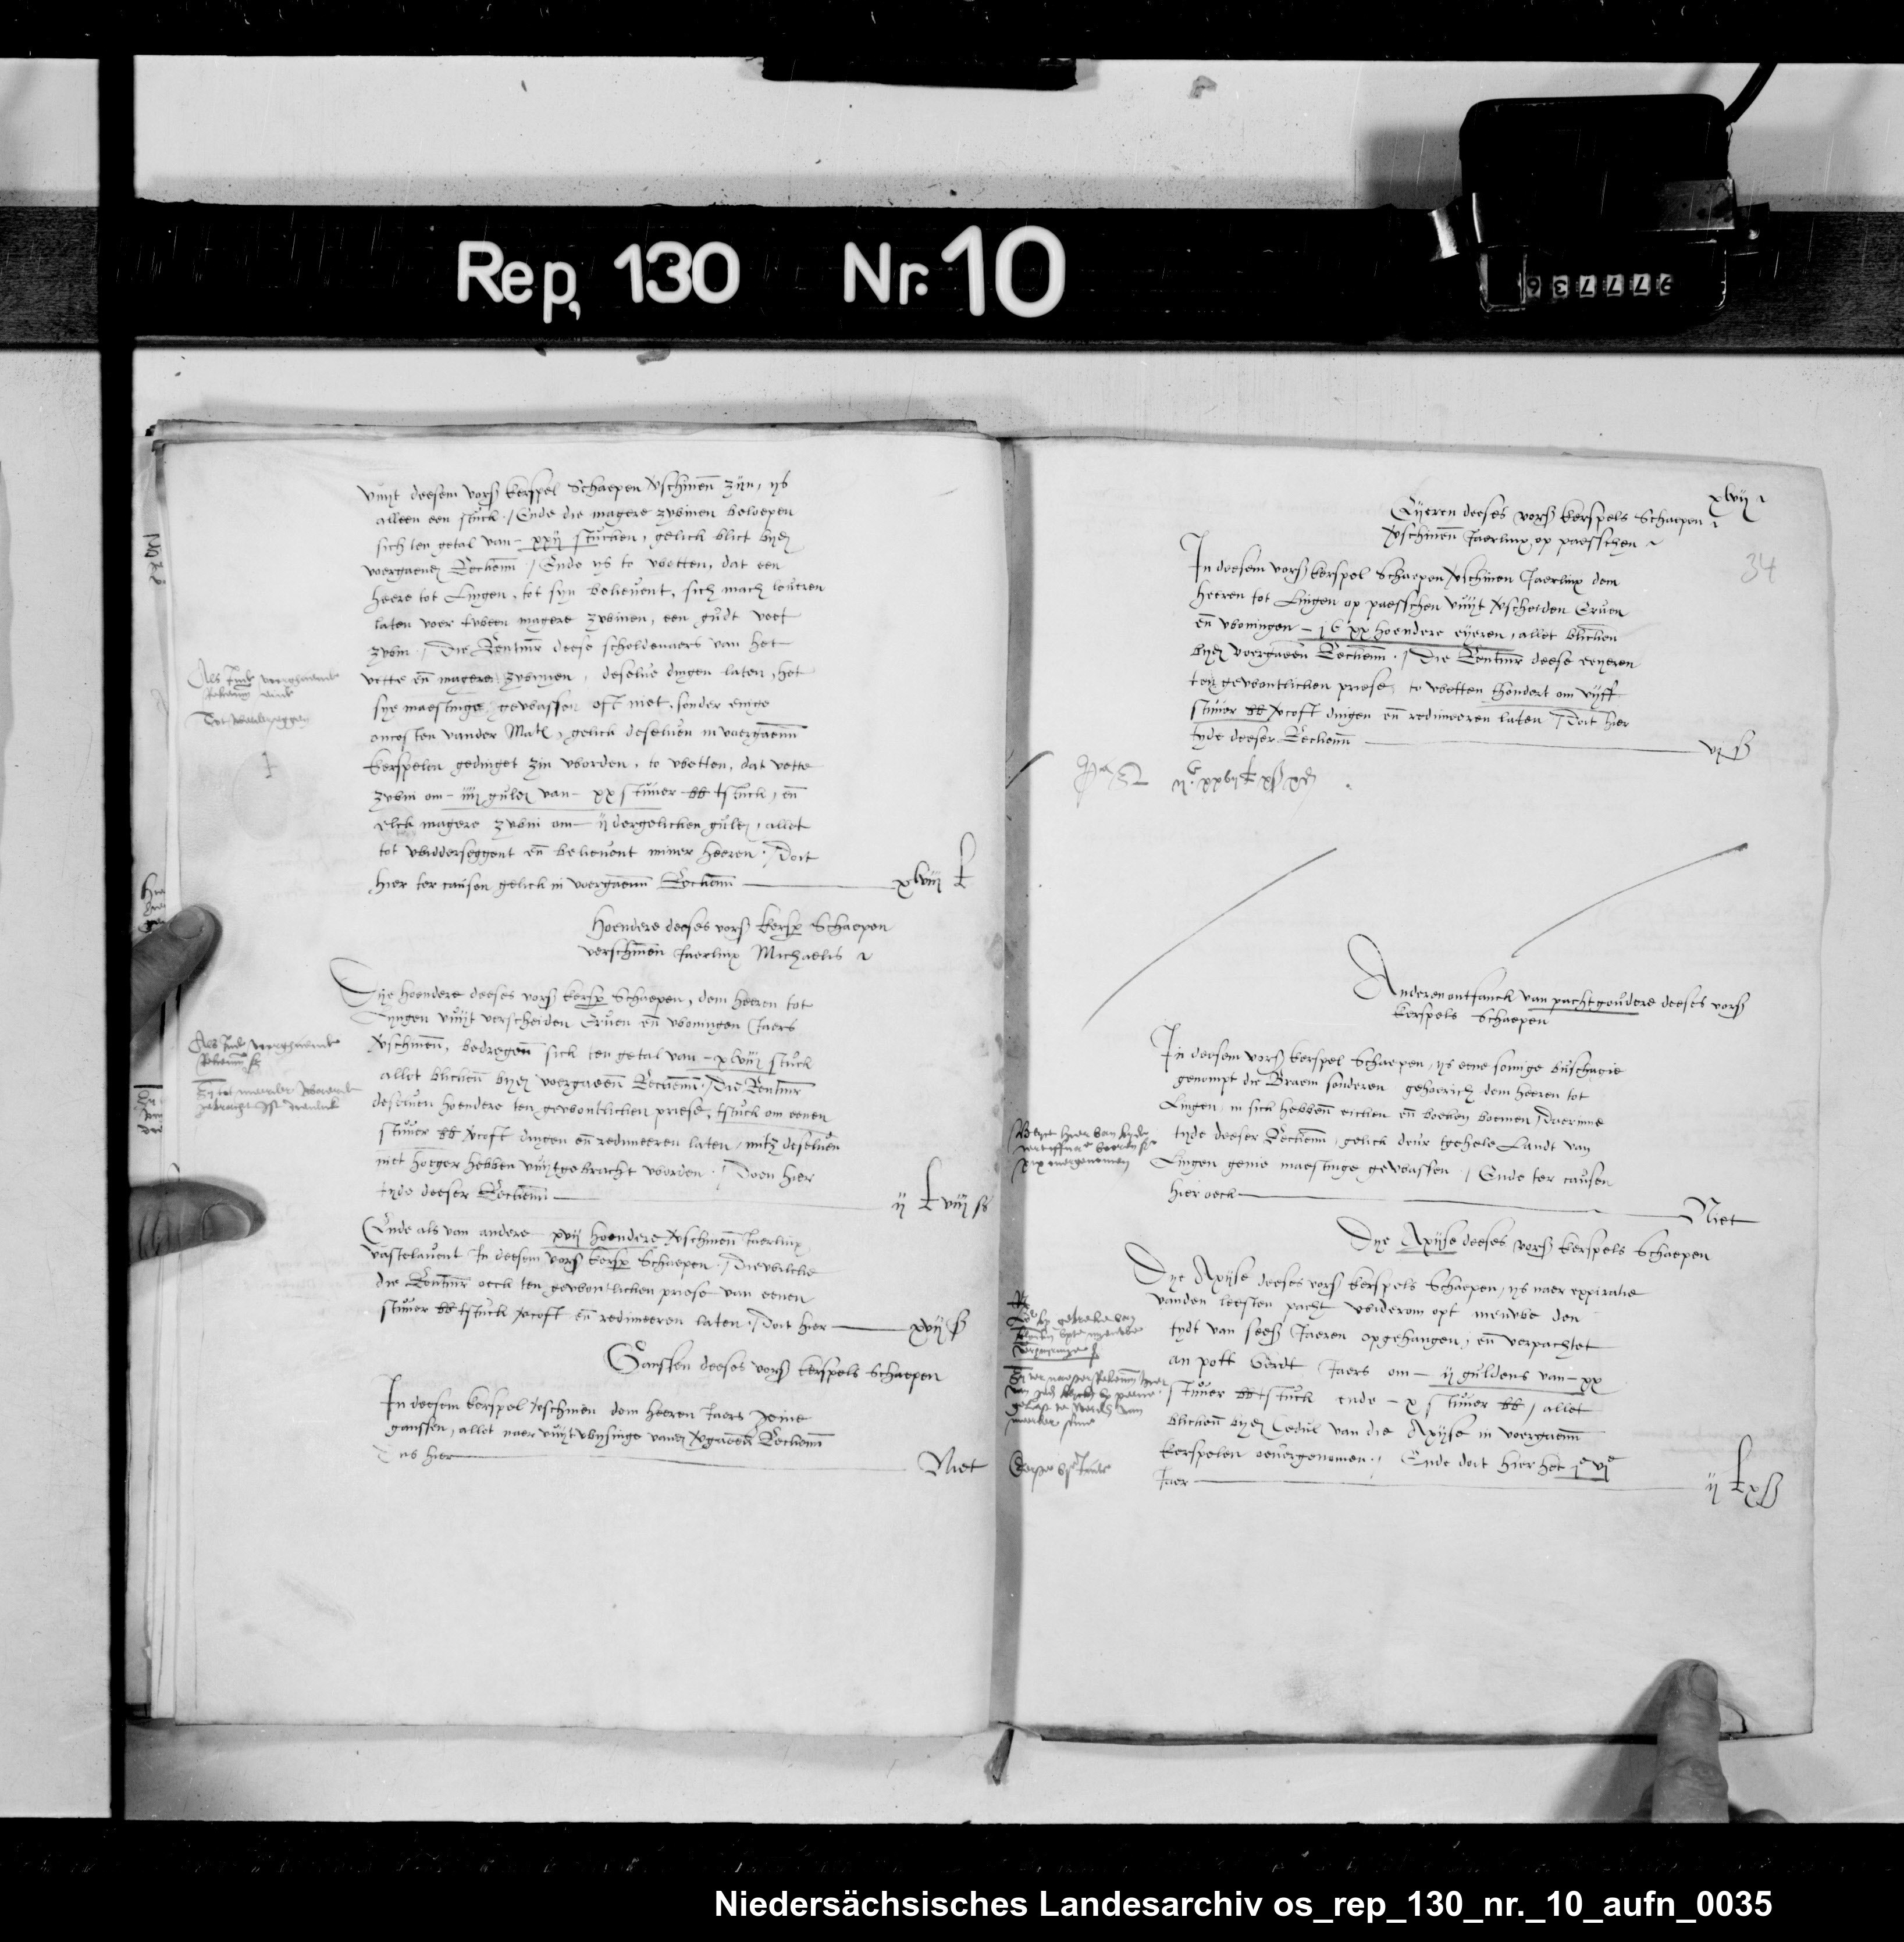 Rep. 130 Nr. 10
977736
vuyt deesem vors kerspel Schaepen verschinen zyn, ys
alleen een stuck / Ende die magere zwinen beloepen
sich ten getal van xxij stucken, gelick blict byden
voergaenden Rekenn / Ende ys te wetten, dat een
heere tot Lingen, tot syn believent, sich mach leveren
laten voer tween magere zwinen, een gudt vett
zwin / Die Rentmr deese scholdenaers van het
vette en magere zwynen, deselve dingen laten, het
sye maestinge gewassen oft niet, sonder enige
oncosten vander Mat, gelick deselven in voergaenn
kerspelen gedinget zin worden, to wetten, dat vette
zwin om iiij gulden van xx stuver bb tstuck, en
elck magere zwin om ij dergelicken gulden, allet
tot widderseggent en believent miner heeren / Doit
hier ter causen gelick in voergaenn Rekenn xlviij £
Hoendere deeses vors kersp Schaepen
verschinen Jaerlinx Michaelis
Dye hoendere deeses vors kersp Schaepen, dem heeren tot
Lyngen vuyt verscheiden Erven en woningen Jaers
verschinenn, bedregenn sick ten getal van xlviij stuck
allet blickenn byden voergaenn Rekenn / Die Rentmr
deselven hoendere ten gewontlicken priese, tstuck om eenen
stuver bb vercoft dingen en redimeeren laten, mitz deselven
niet hoeger hebben vuytgebracht worden / Doen hier
tyde deeser Rekenn ij £ viij ss
Ende als van andere xvij hoendere verschinenn Jaerlinx
vastelavent In deesem vors kersp Schaepen / Diewelcke
die Rentmr oeck ten gewontlicken priese van eenen
stuver bb tstuck vercoft en redimeeren laten / Doit hier xvij ß
Ganssen deeses vors kerspels Schaepen
In deesem kerspel verschinen dem heeren Jaers geine
ganssen, allet naer vuytwysinge vanden vergaenn Rekenn
Dus hier Niet
Als Inde voergaende
xlvij
34
Eyeren deeses vors kerspels Schaepen
verschinenn Jaerlinx op paesschen
In deesem vors kerspel Schaepen verschinen Jaerlinx dem
heeren tot Lingen op paesschen vuyt verscheiden Erven
en woningen j c xx hoendere eyeren, allet blicken
byden voergaenn Rekenn / Die Rentmr deese eeyeren
ten gewontlicken priese, to wetten thondert om vyff
stuver bb vercoft dingen en redimeeren laten / Doit hier
tyde deeser Rekenn vj ß
Anderen ontfanck van pachtgoudere deeses vors
kerspels Schaepen
In deesem vors kerspel Schaepen, ys eene somige buschagie
genompt die Braem sonderen gehoerich dem heeren tot
Lingen in sich hebben eicken en boecken boemen / Daerinne
tyde deeser Rekenn, gelick deur tgehele Landt van
Lingen geine maestinge gewassen / Ende ter causen
hier oeck Niet
Dye Axijse deeses vors kerspels Schaepen
Dye Axijse deeses vors kerspels Schaepen, ys naer expiratie
vanden leesten pacht wederom opt nieuwe den
tydt van sess Jaeren opgehangen, en verpachtet
an pott Gerdt Jaers om ij guldens van xx
stuver bb tstuck ende x stuver bb, allet
blickenn byden Cedul van die Axijse in voergaenn
kerspelen oevergenomen / Ende doit hier het j e vj e
Jaer ij £ x ß
Niedersächsisches Landesarchiv os_rep_130_nr._10_aufn_0035